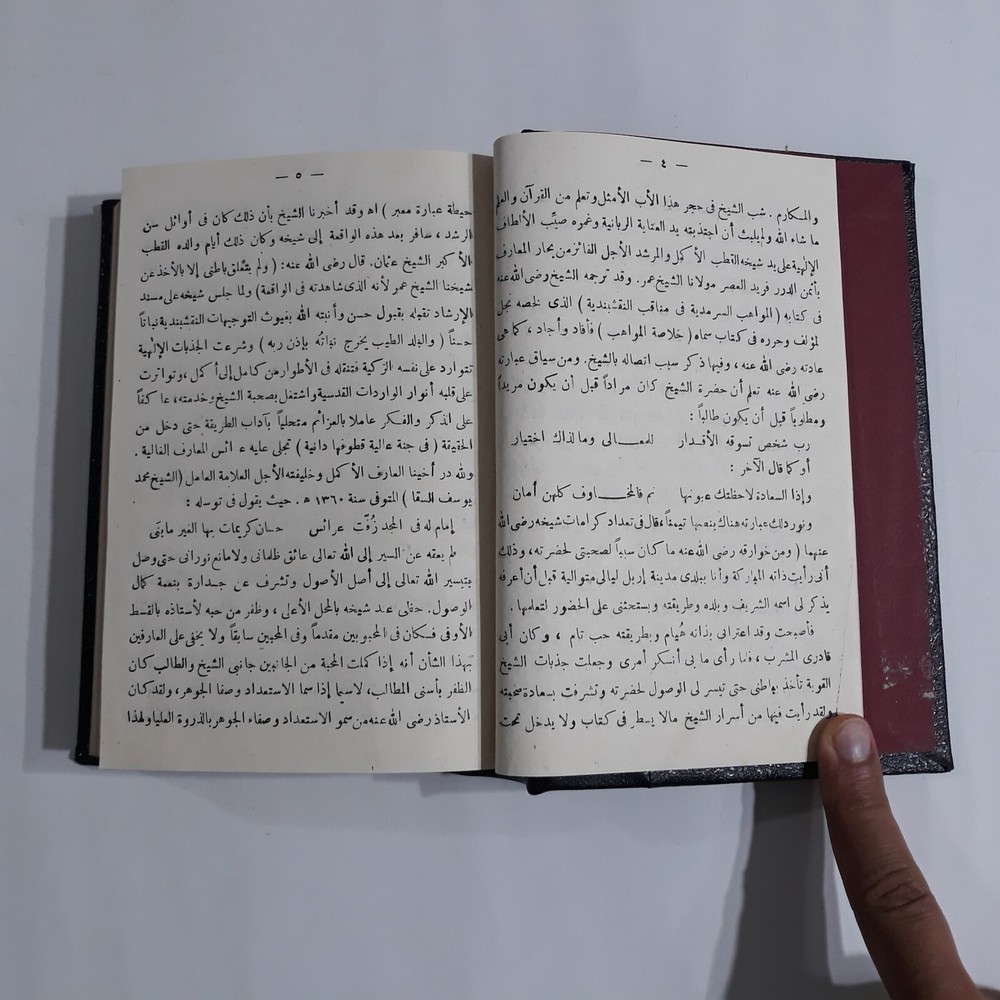 — ٤ —
والمكارم . شب الشيخ فى حجر هذا الأب الأمثل وتعلم من القرآن والعلم
ما شاء الله ولم يلبث أن اجتذبته يد العناية الربانية وغمره صيِّب الألطاف
الإلهية على يد شيخه القطب الأكمل والمرشد الأجل الفائز من بحار المعارف
بأثمن الدرر فريد العصر مولانا الشيخ عمر. وقد ترجمه الشيخ رضى الله عنه
فى كتابه ( المواهب السرمدية فى مناقب النقشبندية ) الذى لخصه نجل
لمؤلف وحرره فى كتاب سماه ( خلاصة المواهب ) فأفاد وأجاد ، كما هى
عادته رضى الله عنه ، وفيها ذكر سبب اتصاله بالشيخ. ومن سياق عبارته
رضى الله عنه تعلم أن حضرة الشيخ كان مراداً قبل أن يكون مريداً
ومطلوباً قبل أن يكون طالباً :
رب شخص تسوقه الأقدار للمعـالى وما لذاك اختيار
أو كما قال الآخر :
وإذا السعادة لاحظتك عيونها نم فالمخـاوف كلهن أمان
ونورد لك عبارته هناك بنصها تيمناً، قال فى تعداد كرامات شيخه رضى الله
عنهما ( ومن خوارقه رضى الله عنه ما كان سبباً لصحبتى لحضرته ، وذلك
أنى رأيت ذاته المباركة وأنا ببلدى مدينة إربل ليالى متوالية قبل أن أعرفه
يذكر لى اسمه الشريف وبلده وطريقته ويستحثنى على الحضور لتعلمها .
فأصبحت وقد اعترانى بذاته هُيام وبطريقته حب تام ، وكان أبى
قادرى المشرب ، فلما رأى ما بى أنكر أمرى وجعلت جذبات الشيخ
القوية تأخذ بباطنى حتى تيسر لى الوصول لحضرته وتشرفت بسعادة صحبته
ولقد رأيت فيها من أسرار الشيخ مالا يسطر فى كتاب ولا يدخل تحت
— ٥ —
حيطة عبارة معبر ) اهـ وقد أخبرنا الشيخ بأن ذلك كان فى أوائل سن
الرشد ، سافر بعد هذه الواقعة إلى شيخه وكان ذلك أيام والده القطب
الأكبر الشيخ عثمان. قال رضى الله عنه: ( ولم يتعلق باطنى إلا بالأخذ عن
شيخنا الشيخ عمر لأنه الذى شاهدته فى الواقعة ) ولما جلس شيخه على مسند
الإرشاد تقبله بقبول حسن وأنبته الله بغيوث التوجيهات النقشبندية نباتاً
حسناً ( والبلد الطيب يخرج نباتُه بإذن ربه ) وشرعت الجذبات الإلهية
تتوارد على نفسه الزكية فتنقله فى الأطوار من كامل إلى أكمل ، وتواترت
على قلبه أنوار الواردات القدسية واشتغل بصحبة الشيخ وخدمته، عاكفاً
على الذكر والفكر عاملا بالعزائم متحلياً بآداب الطريقة حتى دخل من
الحقيقة ( فى جنة عالية قطوفها دانية ) تجلى عليه عرائس المعارف الغالية .
ولله در أخينا العارف الأكمل وخليفته الأجل العلامة العامل (الشيخ محمد
يوسف السقا ) المتوفى سنة ١٣٦٠ هـ . حيث يقول فى توسله :
إمام له فى المجد زُفّت عرائس حسان كريمات بها الغير ما بنَى
لم يعقه عن السير إلى الله تعالى عائق ظلمانى ولا مانع نورانى حتى وصل
بتيسير الله تعالى إلى أصل الأصول وتشرف عن جدارة بنعمة كمال
الوصول. حظى عند شيخه بالمحل الأعلى ، وظفر من حبه لأستاذه بالقسط
الأوفى فسكان فى المحبوبين مقدماً وفى المحبين سابقاً ولا يخفى على العارفين
بهذا الشأن أنه إذا كملت المحبة من الجانبين جانبى الشيخ والطالب كان
الظفر بأسنى المطالب، لاسيما إذا سما الاستعداد وصفا الجوهر، ولقد كان
الأستاذ رضى الله عنه من سمو الاستعداد وصفاء الجوهر بالذروة العليا ولهذا